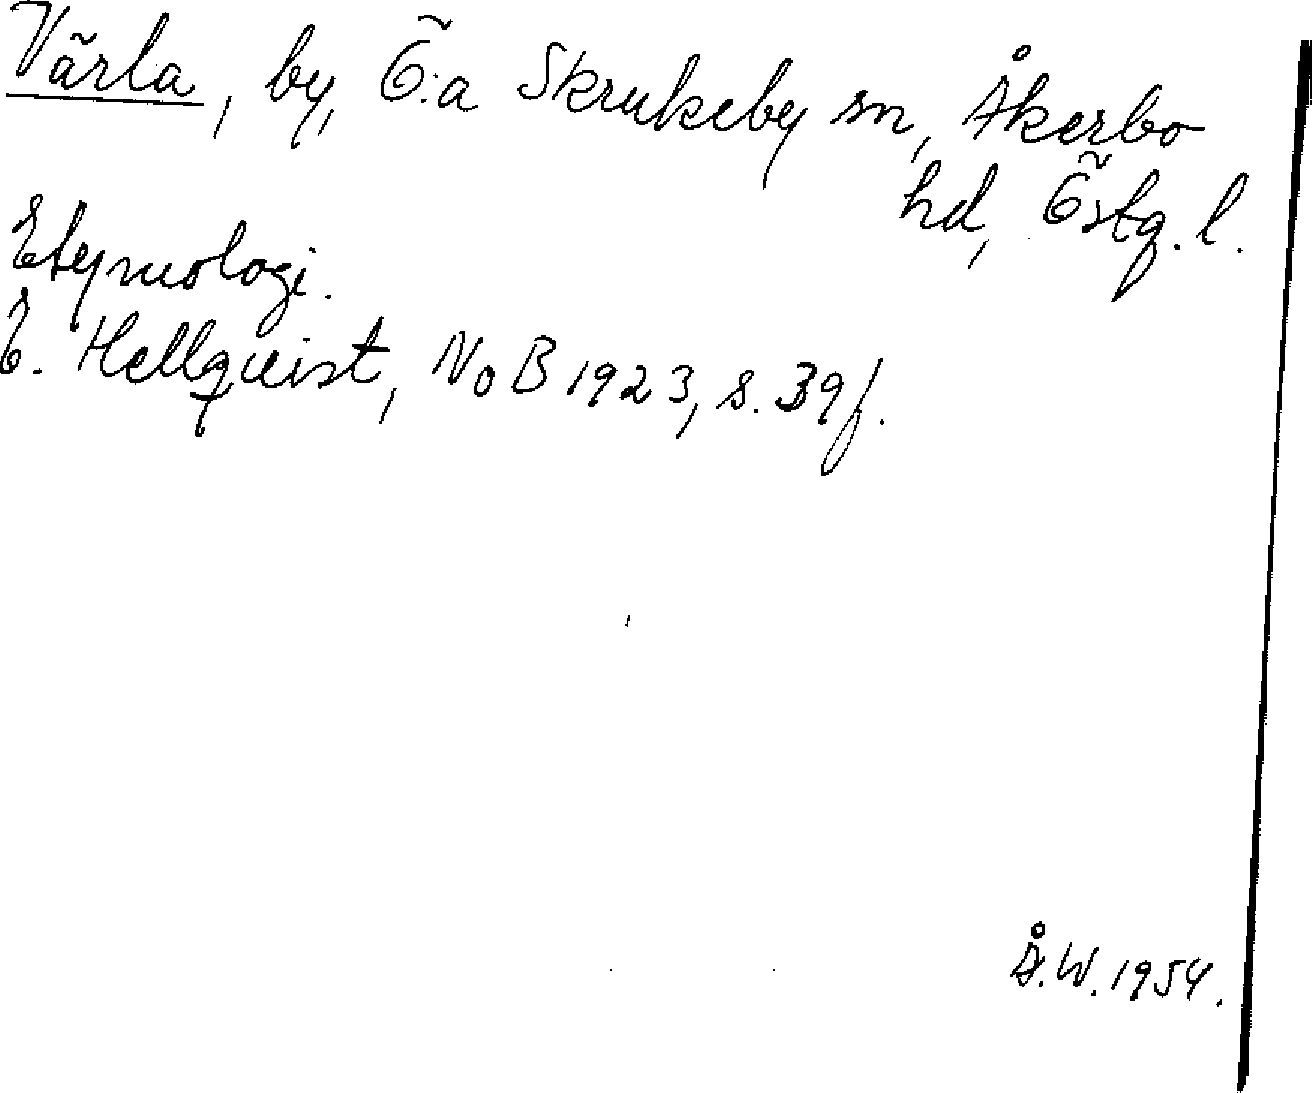 Värla, by, Ö:a Skrukeby sn, Åkerbo
hd, Östg. l.
Etymologi.
E. Hellquist, NoB 1923, s. 39f.
Å.W. 1954.